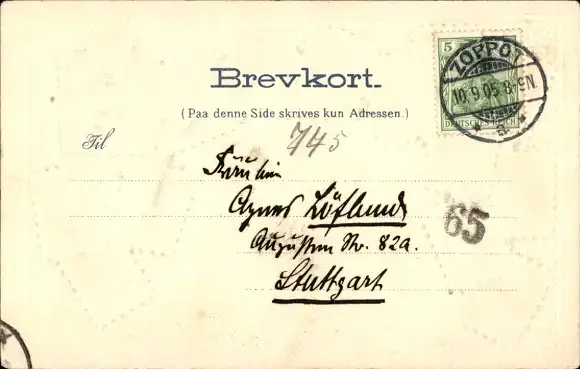 Brevkort.
(Paa denne Side skrives kun Adressen.)
5
DEUTSCHES REICH
ZOPPOT
10.9.05.8-9N.
* a. *
745
Til
Fräulein
Agnes Löflund
Augusten Str. 82a.
Stuttgart
65